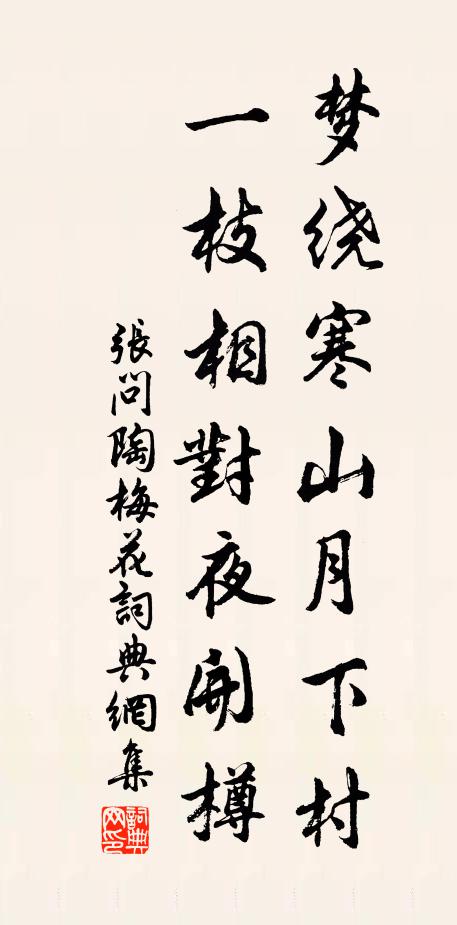 梦绕寒山月下村
一枝相對夜開樽
張問陶梅花詞典網集
詞典网印